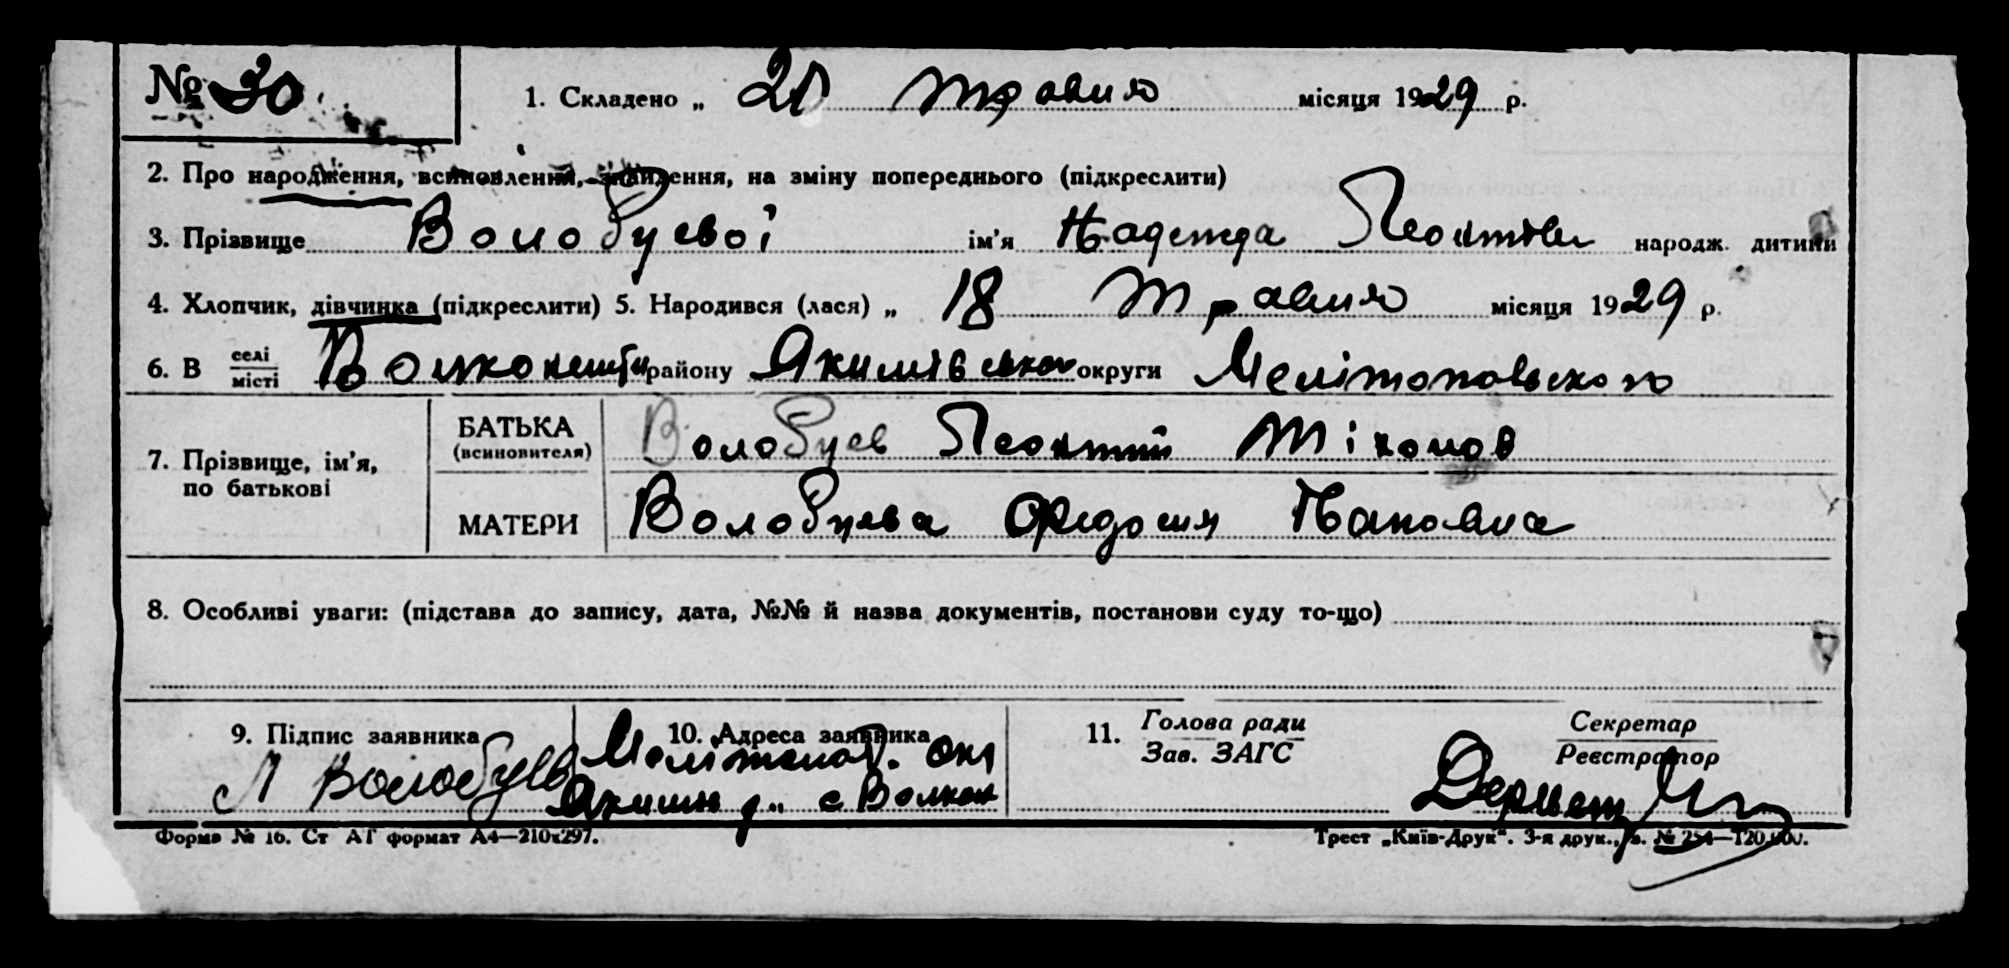 № 30
1. Складено „ 21 травня місяця 1929 р.
2. Про народження, всиновлення, знайдення, на зміну попереднього (підкреслити)
3. Прізвище Волобуєвої ім'я Надежда Леонтіев народж. дитини
4. Хлопчик, дівчинка (підкреслити) 5. Народився (лася) „ 18 травня місяця 1929 р.
6. В селі/місті району Якимівсько округи Мелітопольского
7. Прізвище, ім'я, по батькові
БАТЬКА (всиновителя) Волобуев Леонтий Тіхонов
МАТЕРИ Волобуева Федосия Пановна
8. Особливі уваги: (підстава до запису, дата, №№ й назва документів, постанови суду то-що)
9. Підпис заявника Л Волобуев
10. Адреса заявника Мелітопол. окр
Якими р. с Волкон
11. Голова ради
Зав. ЗАГС
Секретар
Реєстратор
Форма № 16. Ст АГ формат А4—210х297.
Трест „Київ-Друк“. 3-я друк., з. № 254—Т20.000.